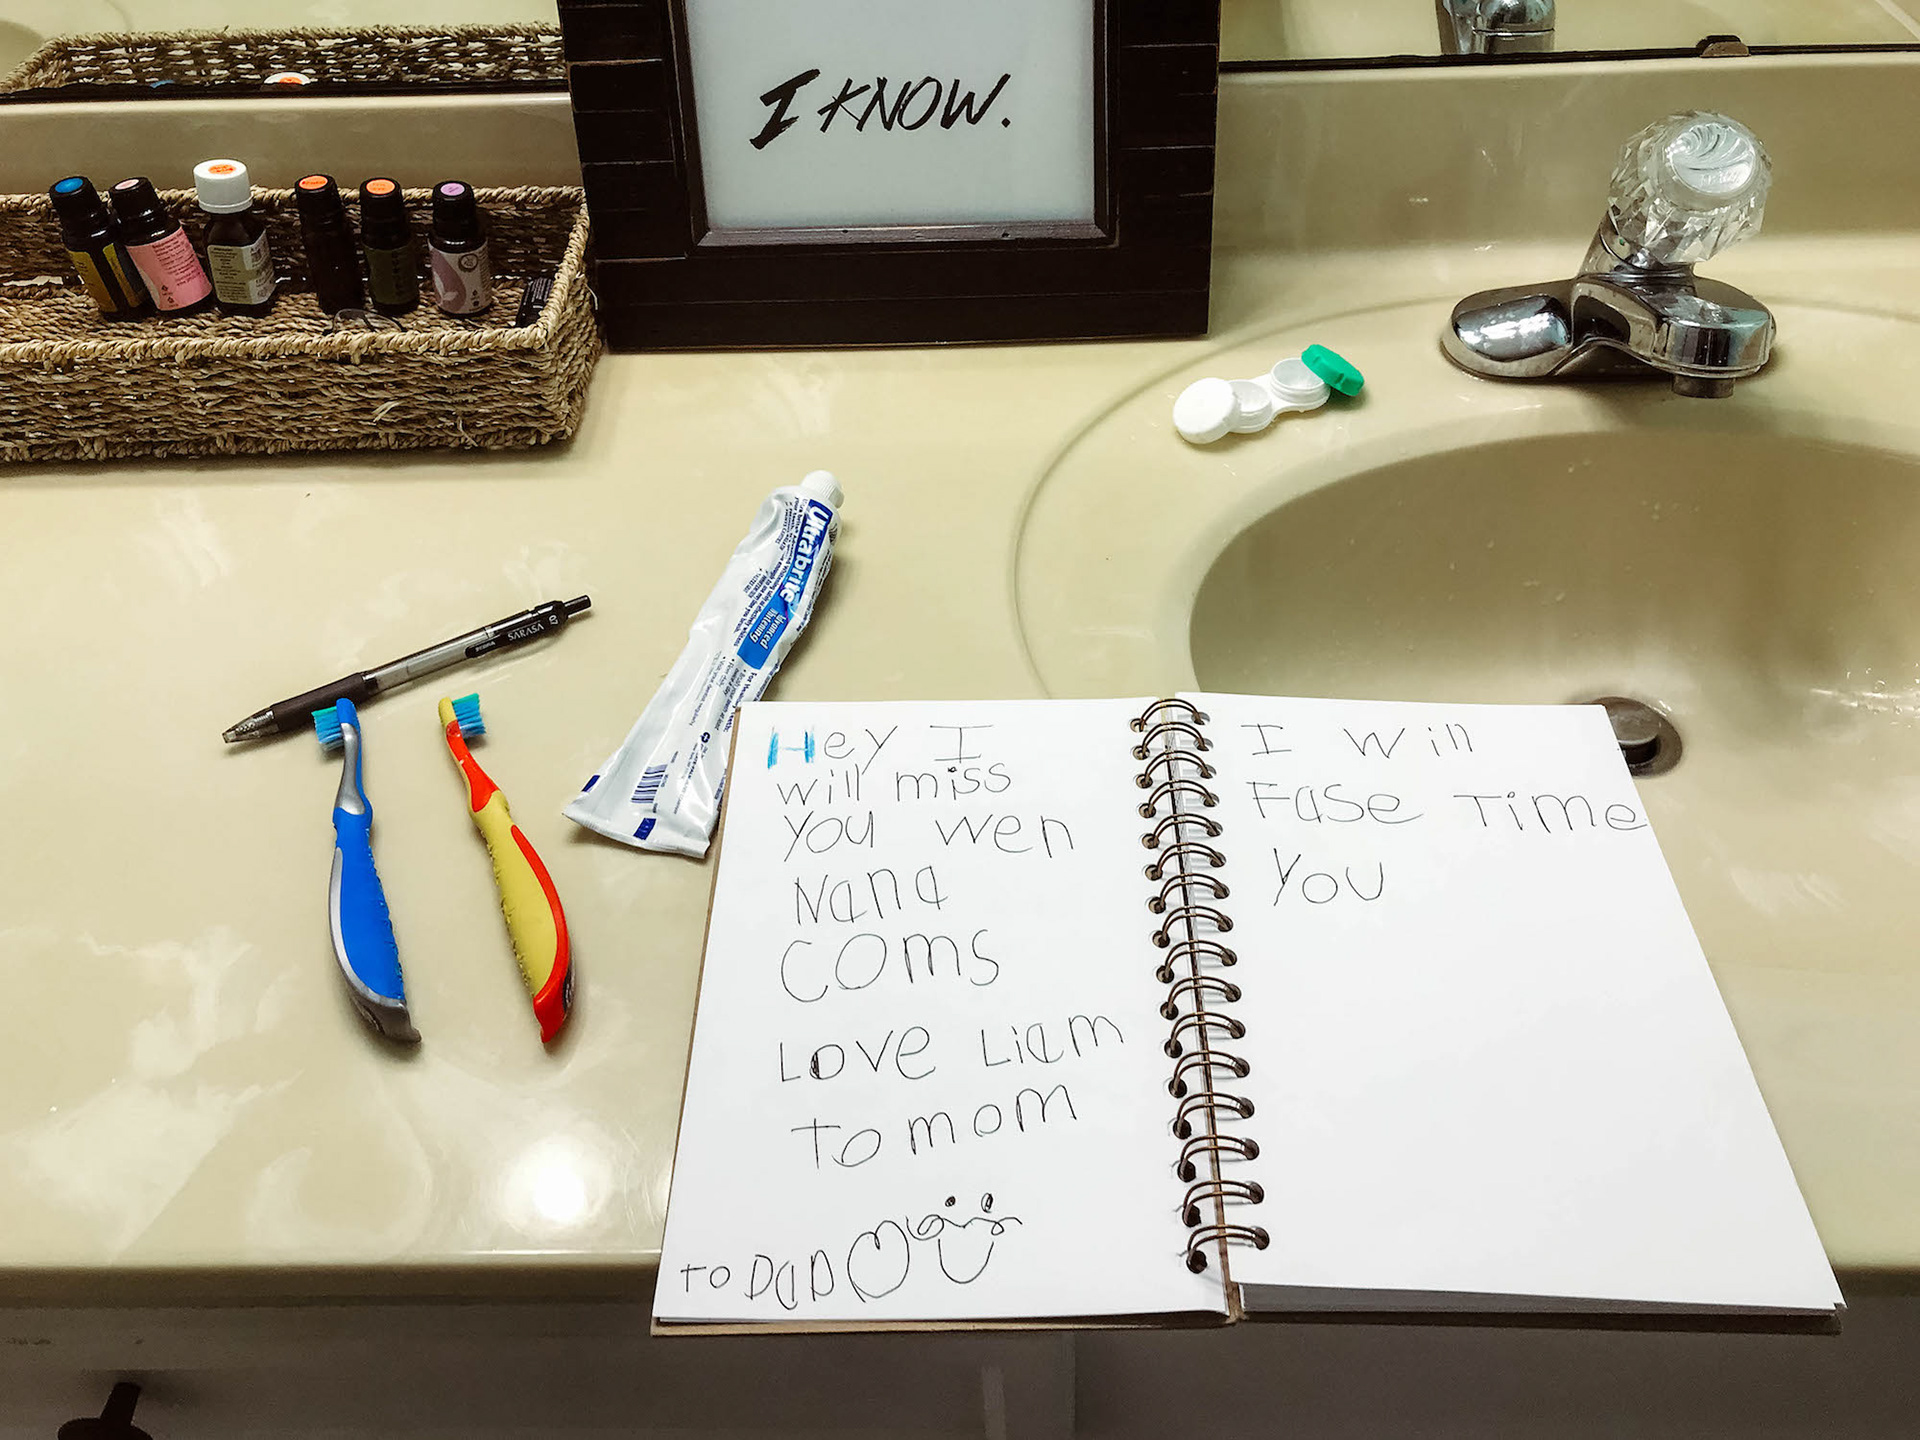 I KNOW.
Ultrabrite
Advanced
Whitening
SARASA
0.7
Hey I
will miss
you wen
Nana
coms
Love Liam
To mom
TO DAD
I will
Fase Time
You